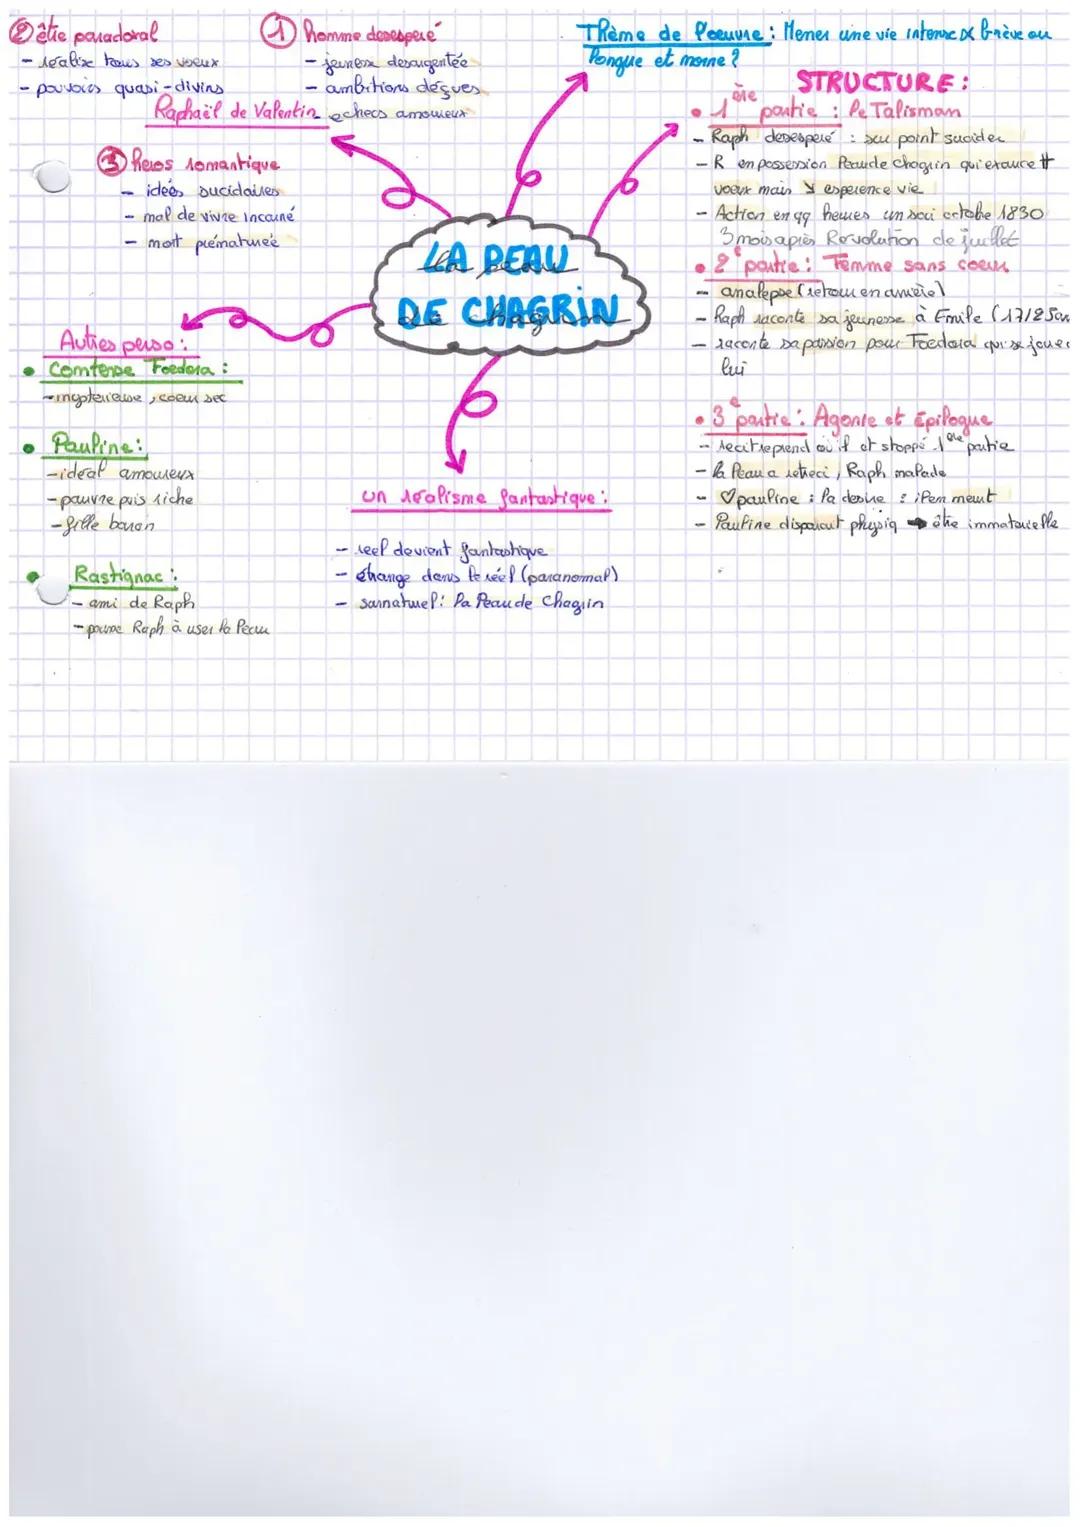 ② être paradoxal
- réalise tous ses voeux
- pouvoirs quasi-divins
① homme desesperé
- jeunesse desargentée
- ambitions déçues
echecs amoureux
Raphaël de Valentin
③ heros romantique
- idées sucidaires
- mal de vivre incarné
- mort prématurée
Thème de l'oeuvre : Mener une vie intense & brève ou
longue et morne ?
STRUCTURE :
• 1ère partie : le Talisman
- Raph desesperé : sur point suicider
- R en possession Peau de Chagrin qui exauce #
voeux mais ↘ esperence vie
- Action en qq heures un soir octobre 1830
3 mois après Revolution de juillet
• 2e partie : Femme sans coeur
- analepse (retour en arrière)
- Raph raconte sa jeunesse à Emile (17/25an
- raconte sa passion pour Foedora qui se joue
lui
• 3e partie : Agonie et Épilogue
- recit reprend où il at stoppé 1ère partie
- la Peau a rétreci, Raph malade
- ♡ pauline : la desire : il en meurt
- Pauline disparait physiq ➡ être immaterielle
LA PEAU
DE CHAGRIN
la peau
de chagrin
Autres perso :
• Comtesse Foedora :
- mysterieuse, coeur sec
• Pauline :
- idéal amoureux
- pauvre puis riche
- fille baron
• Rastignac :
- ami de Raph
- pousse Raph à user la Peau
un réalisme fantastique :
- réel devient fantastique
- étrange dans le réel (paranormal)
- surnaturel : la Peau de Chagrin